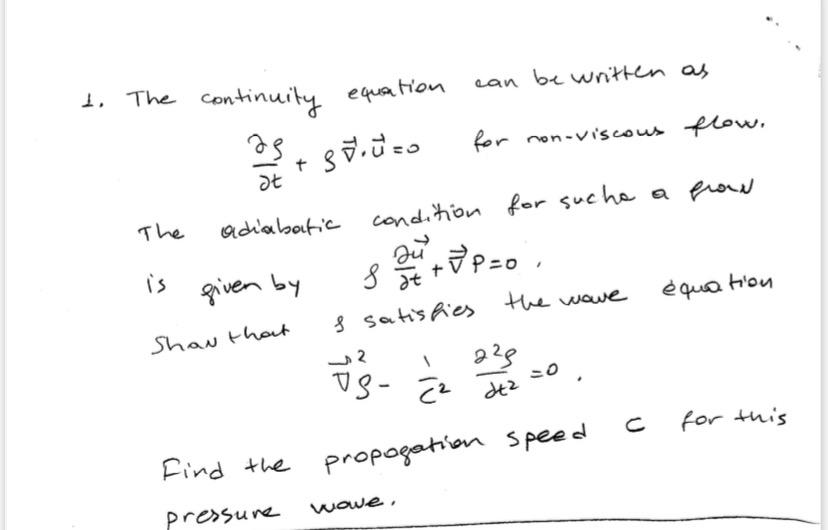 1. The continuity equation can be written as
∂ρ/∂t + ρ ∇⃗·u⃗ = 0 for non-viscous flow.
The adiabatic condition for suche a flow
is given by ρ ∂u⃗/∂t + ∇⃗P = 0 ,
Show that ρ satisfies the wave equation
∇⃗²ρ - 1/c² ∂²ρ/∂t² = 0 .
Find the propogation speed c for this
pressure wave.